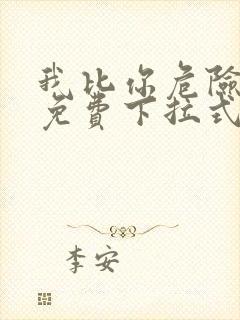 我比你危險
免費下拉式
李安